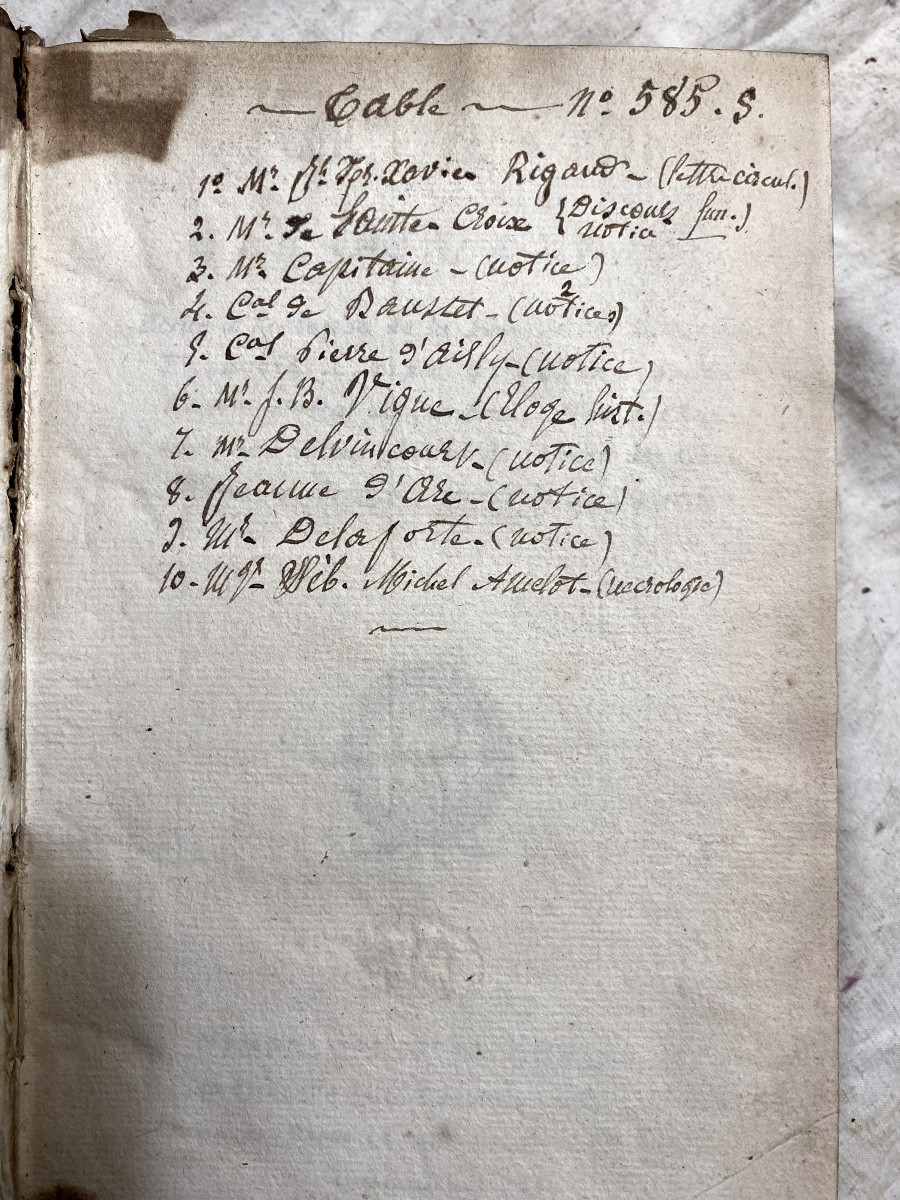 Table Nº 585. S.
1º Mr. Xavier Rigaud - (lettre circul.)
2. Mr. de Sainte-Croix {Discours fun.)
notice
3. Mr. Capitaine - (notice)
4. Cal de Bausset - (2 notices)
5. Cal Pierre d'Ailly - (notice)
6. Mr. J. B. Vigue - (Eloge hist.)
7. Mr. Delvincourt - (notice)
8. Jeanne d'Arc - (notice)
9. Mr. Delaporte - (notice)
10. Mgr Séb. Michel Amelot - (necrologie)